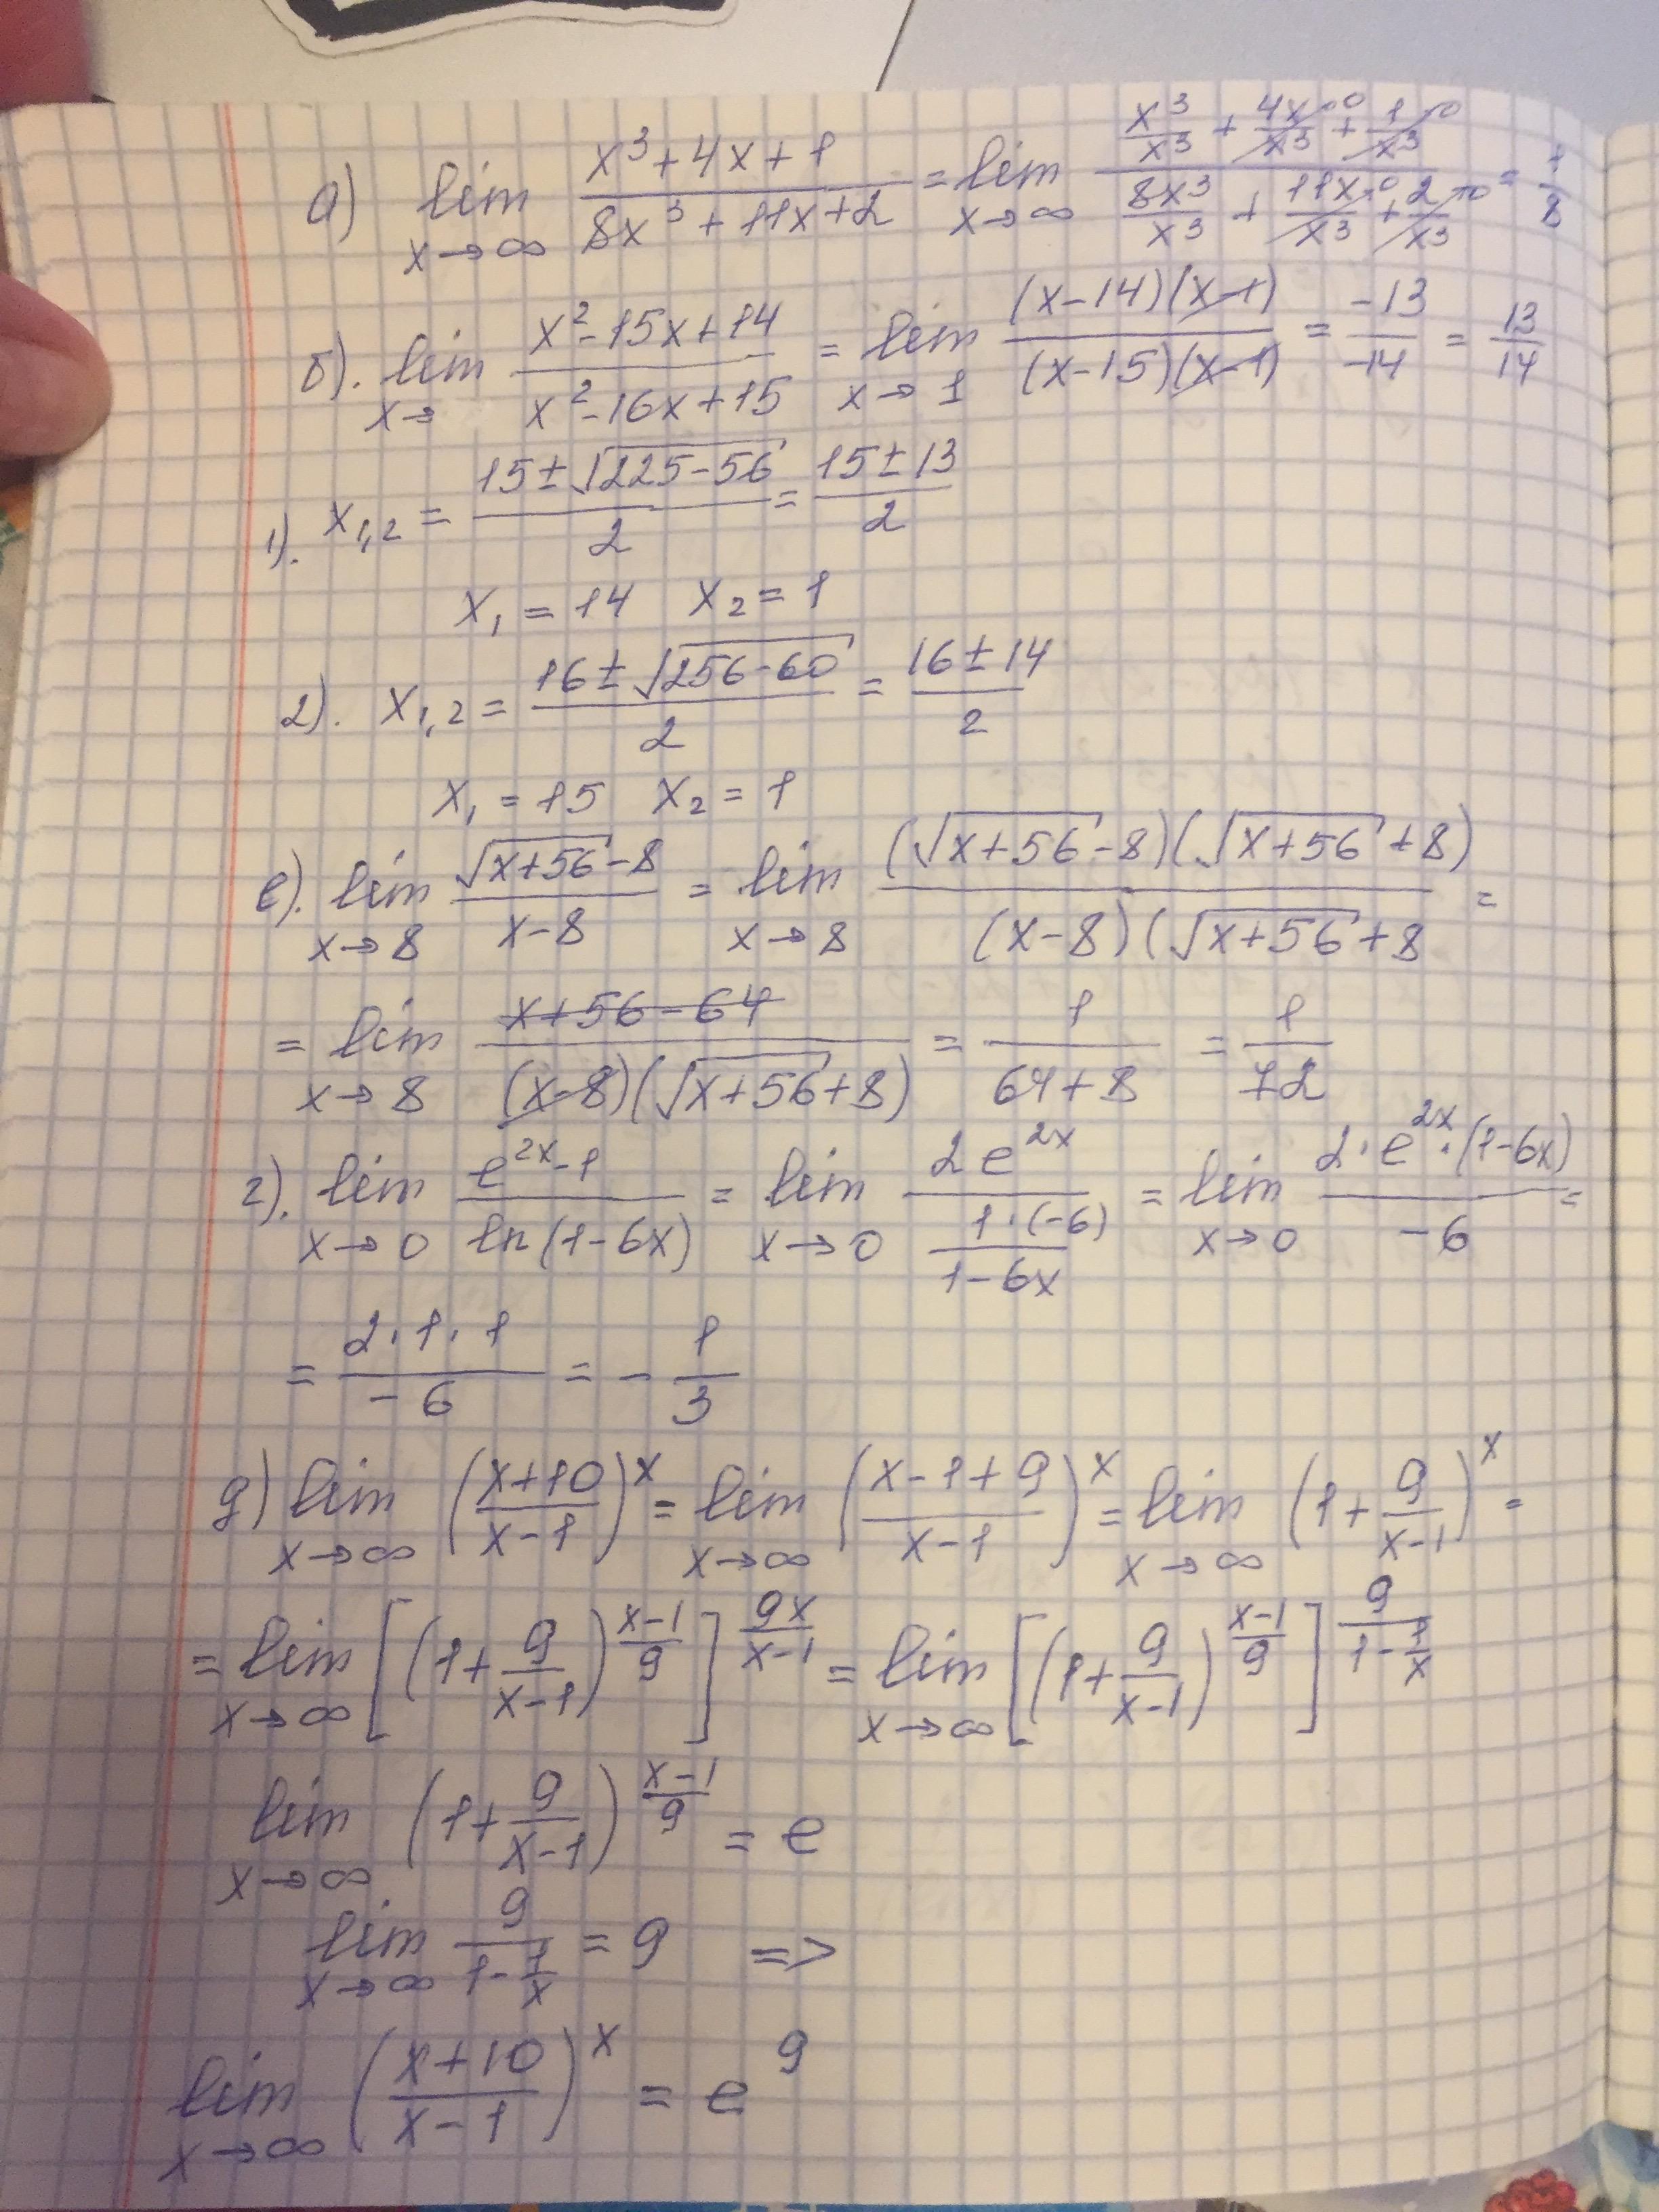 а) lim x→∞ (x³+4x+1)/(8x³+11x+2) = lim x→∞ (x³/x³ + 4x/x³→0 + 1/x³→0)/(8x³/x³ + 11x/x³→0 + 2/x³→0) = 1/8
б). lim x→ (x²-15x+14)/(x²-16x+15) = lim x→1 ((x-14)(x-1))/((x-15)(x-1)) = -13/-14 = 13/14
1). x₁,₂ = (15±√(225-56))/2 = (15±13)/2
x₁ = 14 x₂ = 1
2). x₁,₂ = (16±√(256-60))/2 = (16±14)/2
x₁ = 15 x₂ = 1
в). lim x→8 (√(x+56)-8)/(x-8) = lim x→8 ((√(x+56)-8)(√(x+56)+8))/((x-8)(√(x+56)+8 =
= lim x→8 (x+56-64)/((x-8)(√(x+56)+8)) = 1/(64+8) = 1/72
г). lim x→0 (e^(2x)-1)/(ln(1-6x)) = lim x→0 (2e^(2x))/((1·(-6))/(1-6x)) = lim x→0 (2·e^(2x)·(1-6x))/(-6) =
= (2·1·1)/(-6) = -1/3
д) lim x→∞ ((x+10)/(x-1))^x = lim x→∞ ((x-1+9)/(x-1))^x = lim x→∞ (1+9/(x-1))^x =
= lim x→∞ [(1+9/(x-1))^((x-1)/9)]^(9x/(x-1)) = lim x→∞ [(1+9/(x-1))^((x-1)/9)]^(9/(1-1/x))
lim x→∞ (1+9/(x-1))^((x-1)/9) = e
lim x→∞ 9/(1-1/x) = 9 =>
lim x→∞ ((x+10)/(x-1))^x = e⁹